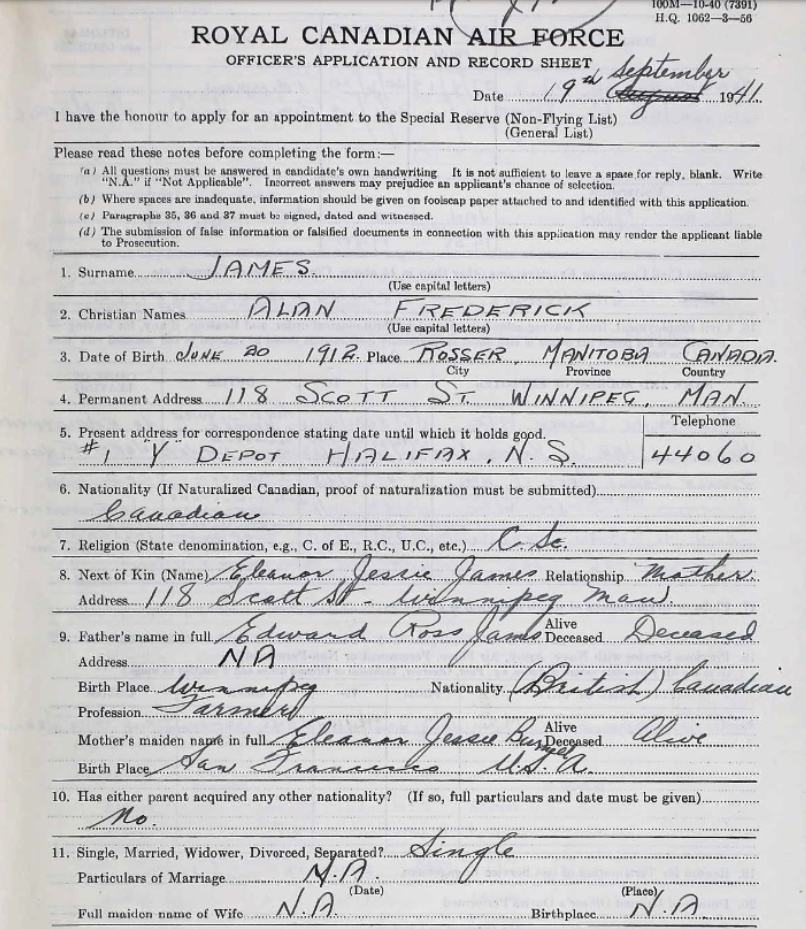 100M—10-40 (7391)
H.Q. 1062—3—56
ROYAL CANADIAN AIR FORCE
OFFICER'S APPLICATION AND RECORD SHEET
Date 19th September August 1941.
I have the honour to apply for an appointment to the Special Reserve (Non-Flying List)
(General List)
Please read these notes before completing the form:—
(a) All questions must be answered in candidate's own handwriting It is not sufficient to leave a space for reply, blank. Write
"N.A." if "Not Applicable". Incorrect answers may prejudice an applicant's chance of selection.
(b) Where spaces are inadequate, information should be given on foolscap paper attached to and identified with this application.
(c) Paragraphs 35, 36 and 37 must be signed, dated and witnessed.
(d) The submission of false information or falsified documents in connection with this application may render the applicant liable
to Prosecution.
1. Surname JAMES.
(Use capital letters)
2. Christian Names ALAN FREDERICK
(Use capital letters)
3. Date of Birth JUNE 20 1912. Place ROSSER, MANITOBA CANADA.
City Province Country
4. Permanent Address 118 SCOTT ST. WINNIPEG, MAN.
Telephone
5. Present address for correspondence stating date until which it holds good.
#1 "Y" DEPOT HALIFAX, N.S. 44060
6. Nationality (If Naturalized Canadian, proof of naturalization must be submitted)
Canadian
7. Religion (State denomination, e.g., C. of E., R.C., U.C., etc.) C. Sc.
8. Next of Kin (Name) Eleanor Jessie James Relationship Mother.
Address 118 Scott St. Winnipeg Man.
9. Father's name in full Edward Ross James Alive Deceased Deceased
Address NA
Birth Place Winnipeg Nationality (British) Canadian
Profession Farmer
Mother's maiden name in full Eleanor Jessie Alive Deceased Alive
Birth Place San Francisco U.S.A.
10. Has either parent acquired any other nationality? (If so, full particulars and date must be given)
No.
11. Single, Married, Widower, Divorced, Separated? Single
Particulars of Marriage N.A.
(Date) (Place)
Full maiden name of Wife N.A. Birthplace N.A.